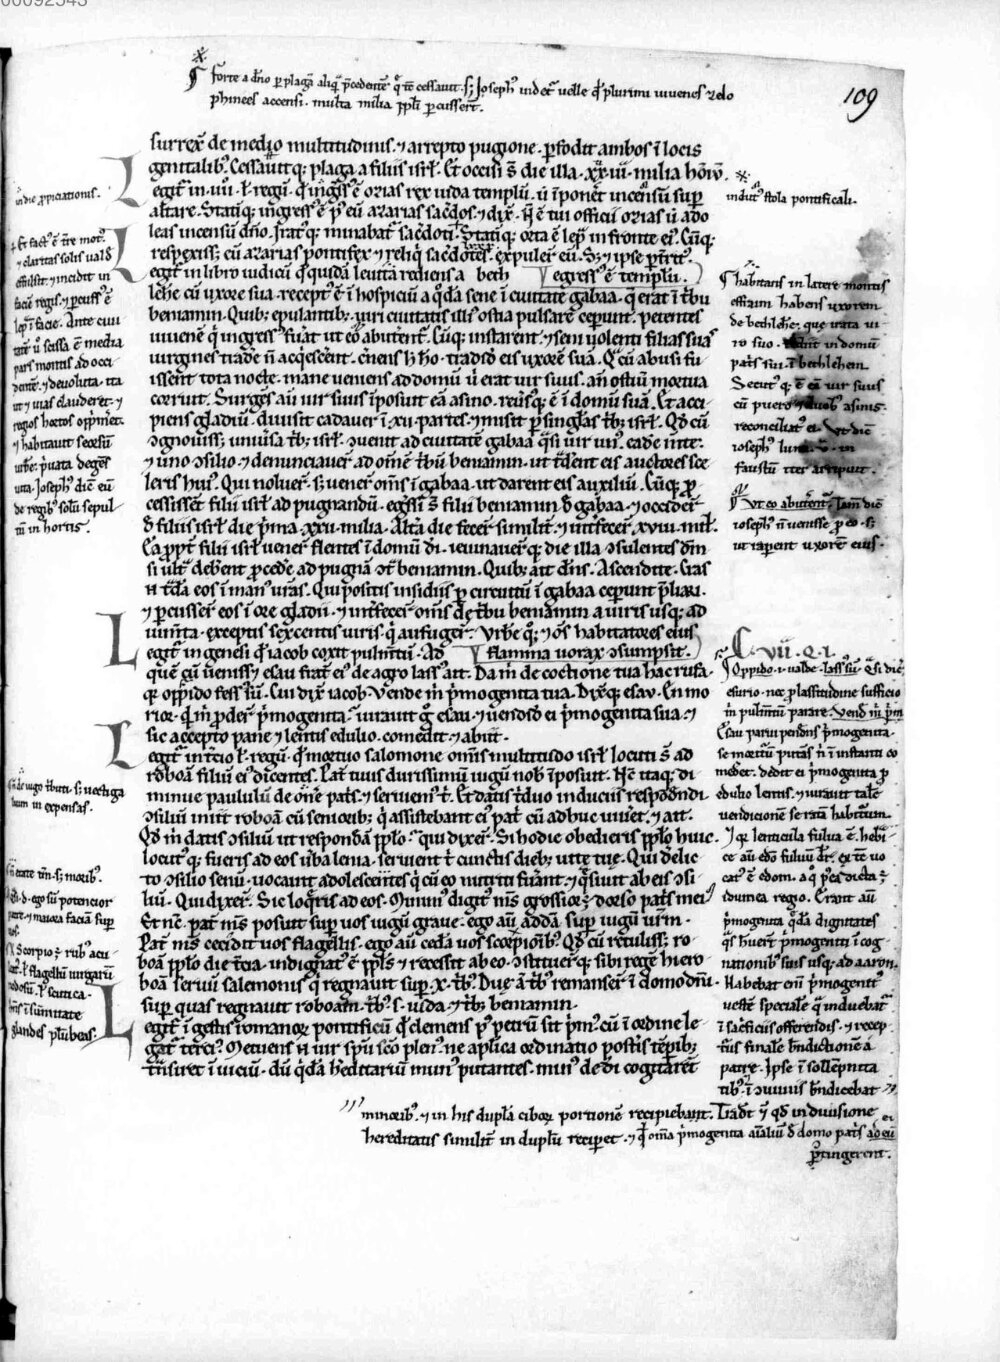 00092543
109
Forte a dño ꝑ plagã aliq̃ p̃cedentẽ q̃ tc̃ cessauit. s; Joseph᷒ uidet᷑ uelle qđ plurimi iuuenes zelo
phinees accensi. multa milia ppl̃i ꝑcusserũt.
surrex̃ de medio multitudinis. ⁊ arrepto pugione. ꝑfodit ambos ĩ locis
genitalib᷒. Cessauitq; plaga a filiis isrł. Et occisi s̃ die illa. xxiiii. milia hõm̃.
Legit᷑ in. ł. regũ. q̃ ingress᷒ ẽ ozias rex iuda templũ. ut ĩponet᷑ incensũ suꝑ
altare. Statiq; ingress᷒ ẽ p᷒ eũ azarias sac̃dos. ⁊ dix̃. Ñ ẽ tui officii ozias ut ado
leas incensũ dño. Irat᷒q; minabat᷑ sac̃doti. Statiq; orta ẽ lep̃ in fronte ei᷒. Cũq;
respexiss; eũ azarias pontifex ⁊ reliq̃ sac̃dotes. expuler̃ eũ. S; ⁊ ipse ꝑt̃rit᷒
egress᷒ ẽ templũ.
Legit᷑ in libro iudicũ qđ quidã leuita rediens a beth
lehẽ cũ uxore sua. recept᷒ ẽ ĩ hospiciũ a qđã sene ĩ ciuitate gabaa. q̃ erat ĩ t̃bu
beniamin. Quib; epulantib;. uiri ciuitatis illi᷒ ostia pulsare ceperunt. petentes
uirũ q̃ ingress᷒ fuãt ut eo abutent᷑. Cũq; instarent. ⁊ seni uolenti filias suas
uirgines trad̃e ñ acq̃escent. tradid̃ eis uxorẽ suã. Q̃ cũ abusi fu
issent tota nocte. mane ueniens ad domũ ut erat uir suus. añ ostiũ mortua
corruit. Surgẽs aũ uir suus ĩposuit eã asino. reũsq; ẽ ĩ domũ suã. Et acci
piens gladiũ. diuisit cadauer ĩ xii. partes. ⁊ misit ꝑ singl̃as t̃b; isrł. Qđ cũ
ɔgnouiss; uniũsa t̃b; isrł. ɔuenit ad ciuitatẽ gabaa q̃si uir un᷒. eadẽ mente.
⁊ uno ɔsilio. ⁊ denunciauer̃ ad om̃ẽ t̃bũ beniamin. ut t̃dent eis auctores sce
leris hui᷒. Qui noluer̃. s; uener̃ om̃s ĩ gabaa. ut darent eis auxiliũ. Cũq; p̃
cessissent filii isrł ad pugnandũ. egss̃i s̃ filii beniamin đ gabaa. ⁊ occider̃
đ filiis isrł die p̃ma. xxii. milia. Alt̃a die fecer̃ similit᷑. ⁊ int̃fecer̃ xviii. mił.
Ea p̃pt᷑ filii isrł uener̃ flentes ĩ domũ dĩ. ieiunauer̃q; die illa ɔsulentes dñm
si ult᷑ deb̃ent p̃ced̃e ad pugnã ɔt᷑ beniamin. Quib; ait dñs. Ascendite. Cras
eñ t̃dã eos ĩ man᷒ ur̃as. Qui positis insidiis ꝑ circuitũ ĩ gabaa ceperunt p̃liari.
⁊ ꝑcusser̃ eos ĩ ore gladii. ⁊ int̃fecer̃ om̃s de t̃bu beniamin a uiris usq; ad
ium̃ta. exceptis sexcentis uiris. q̃ aufuger̃. Vrbẽ q̃; ⁊ om̃s habitatores eius
flamma uorax ɔsumpsit.
Legit᷑ in genesi qđ iacob coxit pulm̃tũ. Ad
quẽ cũ ueniss; esau frat᷑ ei᷒ de agro lass᷒ ait. Da m̃ de coctione tua hac rufa.
q; oppido fess᷒ sũ. Cui dix̃ iacob. Vende m̃ p̃mogenita tua. Dix̃q; esau. En mo
rior. qđ m̃ p̃der̃ p̃mogenita. iurauit g̃ esau. ⁊ uendid̃ ei p̃mogenita sua. ⁊
sic accepto pane ⁊ lentis edulio. comedit ⁊ abiit.
Legit᷑ in t̃cio ł. regũ. q̃ mortuo salomone om̃is multitudo isrł locuti s̃ ad
roboã filiũ ei᷒ dicentes. Pat᷑ tuus durissimũ iugũ nob᷒ ĩposuit. Tu itaq; di
minue paululũ de om̃e pat̃s. ⁊ seruiem᷒ t̃. Et datis t̃duo induciis respõdndi
ɔsiliũ iniit roboã cũ seniorib; q̃ assistebant ei᷒ pat̃ cũ adhuc uiũet. ⁊ ait.
Qđ m̃ datis ɔsiliũ ut respondã ppl̃o. qui dixer̃. Si hodie obedieris ppl̃o huic.
locut᷒q; fueris ad eos ũba lenia. seruient t̃ cunctis dieb; uite tue. Qui đelic
to ɔsilio senũ. uocauit adolescentes q̃ cũ eo nutriti fuãnt. ⁊ q̃siuit ab eis ɔsi
liũ. Qui dixer̃. Sic loq̃ris ad eos. Minim᷒ digit᷒ m̃s grossior ẽ dorso pat̃s mei.
Et nc̃. pat᷑ m̃s posuit suꝑ uos iugũ graue. ego aũ addã suꝑ iugũ ur̃m.
Pat᷑ m̃s cecidit uos flagellis. ego aũ cedã uos scorpiõib᷒. Qđ cũ retuliss; ro
boã ppl̃o die t̃cia. indignat᷒ ẽ ppl̃s. ⁊ recessit ab eo. ɔstituer̃q; sibi regẽ hiero
boã seruũ salemonis q̃ regnauit suꝑ .x. t̃b᷒. Due aũ t̃b᷒ remanser̃ ĩ domo dd̃.
suꝑ quas regnauit roboam. t̃b᷒. s. iuda. ⁊ t̃b; beniamin.
Legit᷑ ĩ gestis romanorᷓ pontificũ qđ clemens p᷒ petrũ sit p̃m᷒. cũ ĩ ordine le
gat᷑ terci᷒. Metuens eñ uir spũ sc̃o plen᷒. ne apl̃ica ordinatio post̃is tẽpib;
t̃nsiret ĩ uiciũ. dũ q̃dã h̃editariũ mun᷒ putantes. mun᷒ dei dĩ cogitar̃et
in die ꝓpiciationis.
Et fact᷒ ẽ t̃re mot᷒.
⁊ claritas solis ualđ
effulsit. ⁊ incidit in
faciẽ regis. ⁊ ꝑcuss᷒ ẽ
lep̃ ĩ facie. Ante ciui
tatẽ ũ scissa ẽ media
pars montis ad occi
dentẽ. ⁊ deuoluta. ita
ut ⁊ uias clauderet. ⁊
regios hortos opp̃meret.
⁊ habitauit secesũ
urbẽ. p̃uata degẽs
uita. Joseph᷒ diẽ eũ
de regib᷒ solũ sepul
tũ in hortis.
ñ de iugo t̃buti. s; uectiga
lium in expensis.
ñ etate tm̃. s; morib᷒.
q. đ. ego sũ potencior
patre. ⁊ maiora faciã suꝑ
uos.
Scorpio ẽ rub᷒ acu
leat᷒. ł flagellũ uirgarũ
nodosũ. ł scutica.
ĩ sumitate
glandes plũbeas.
induit᷒ stola pontificali.
habitans in latere montis
effraim habens uxorem
de bethlehẽ. que irata ui
ro suo. rediit in domũ
pat̃s sui. ĩ bethlehem.
Secut᷒q; ẽ eã uir suus
cũ puero ⁊ duob᷒ asinis.
reconciliat᷒ ei. Vt dic̃
ioseph᷒ in
faustũ iter arripuit.
Vt eo abutent᷑. Jam dic̃
ioseph᷒ ñ uenisse p̃ eo. s;
ut raꝑent uxorẽ eius.
C. VII. Q. I.
Oppido. i. ualde. lass᷒ sũ. Q̃si dic̃
esurio. nec p̃ lassitudine sufficio
m̃ pulm̃tũ parare. Vend̃ m̃ p̃m
Esau parui pendens p̃mogenita.
se moriturũ putãs ñ ĩ instanti co
mederet. dedit ei p̃mogenita p̃
edulio lentis. ⁊ iurauit talẽ
uendicionẽ se ratã habiturum.
Jq; lenticula fulua ẽ. hebi
ce aũ edõ fuluũ dr̃. ex tc̃ uo
cat᷒ ẽ edom. a q̃ p᷒ea dicta ẽ
idumea regio. Erant aũ
p̃mogenita q̃dã dignitates
q̃s huer̃ p̃mogeniti ĩ cog
nationib᷒ suis usq; ad aaron.
Habebat eñ p̃mogenit᷒
uestẽ specialẽ q̃ induebat᷑
ĩ sac̃ficiis offerendis. ⁊ recep
tur᷒ finalẽ bñdictionẽ a
patre. Ipse ĩ sollẽpnita
tib᷒. ĩ ɔuiuiis bñdicebat
minorib᷒. ⁊ in his duplã ciborᷓ portionẽ recipiebant. Tradit᷑ ẽ qđ in diuisione
hereditatis similit᷑ in duplũ reciꝑet. ⁊ qđ om̃a p̃mogenita aĩaliũ đ domo pat̃s ad eũ
ꝑtingerent.